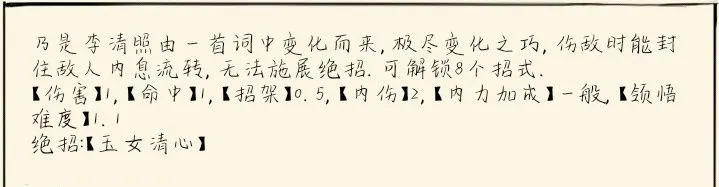 乃是李清照由一首词中变化而来,极尽变化之巧,伤敌时能封
住敌人内息流转,无法施展绝招.可解锁8个招式.
【伤害】1,【命中】1,【招架】0.5,【内伤】2,【内力加成】一般,【领悟
难度】1.1
绝招:【玉女清心】